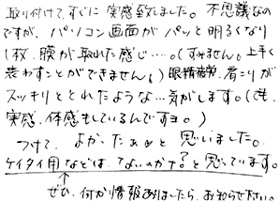 取り付けて、すぐに実感致しました。不思議なの
ですが、パソコン画面がパッと明るくなり
1枚、膜が取れた感じ……。(すみません。上手く
表わすことができません!) 眼精疲労、肩こりが
スッキリととれたような…気がします。(でも、
実感、体感もしているんですヨ。)
つけて、よかったぁぁと思いました。
ケイタイ用などは、ないのかナ?と思っています。
ぜひ、何か情報ありましたら、お知らせ下さい。